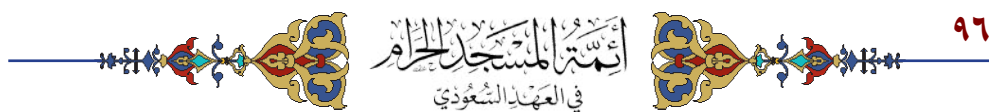 ٩٦
أئمة المسجد الحرام
في العهد السعودي